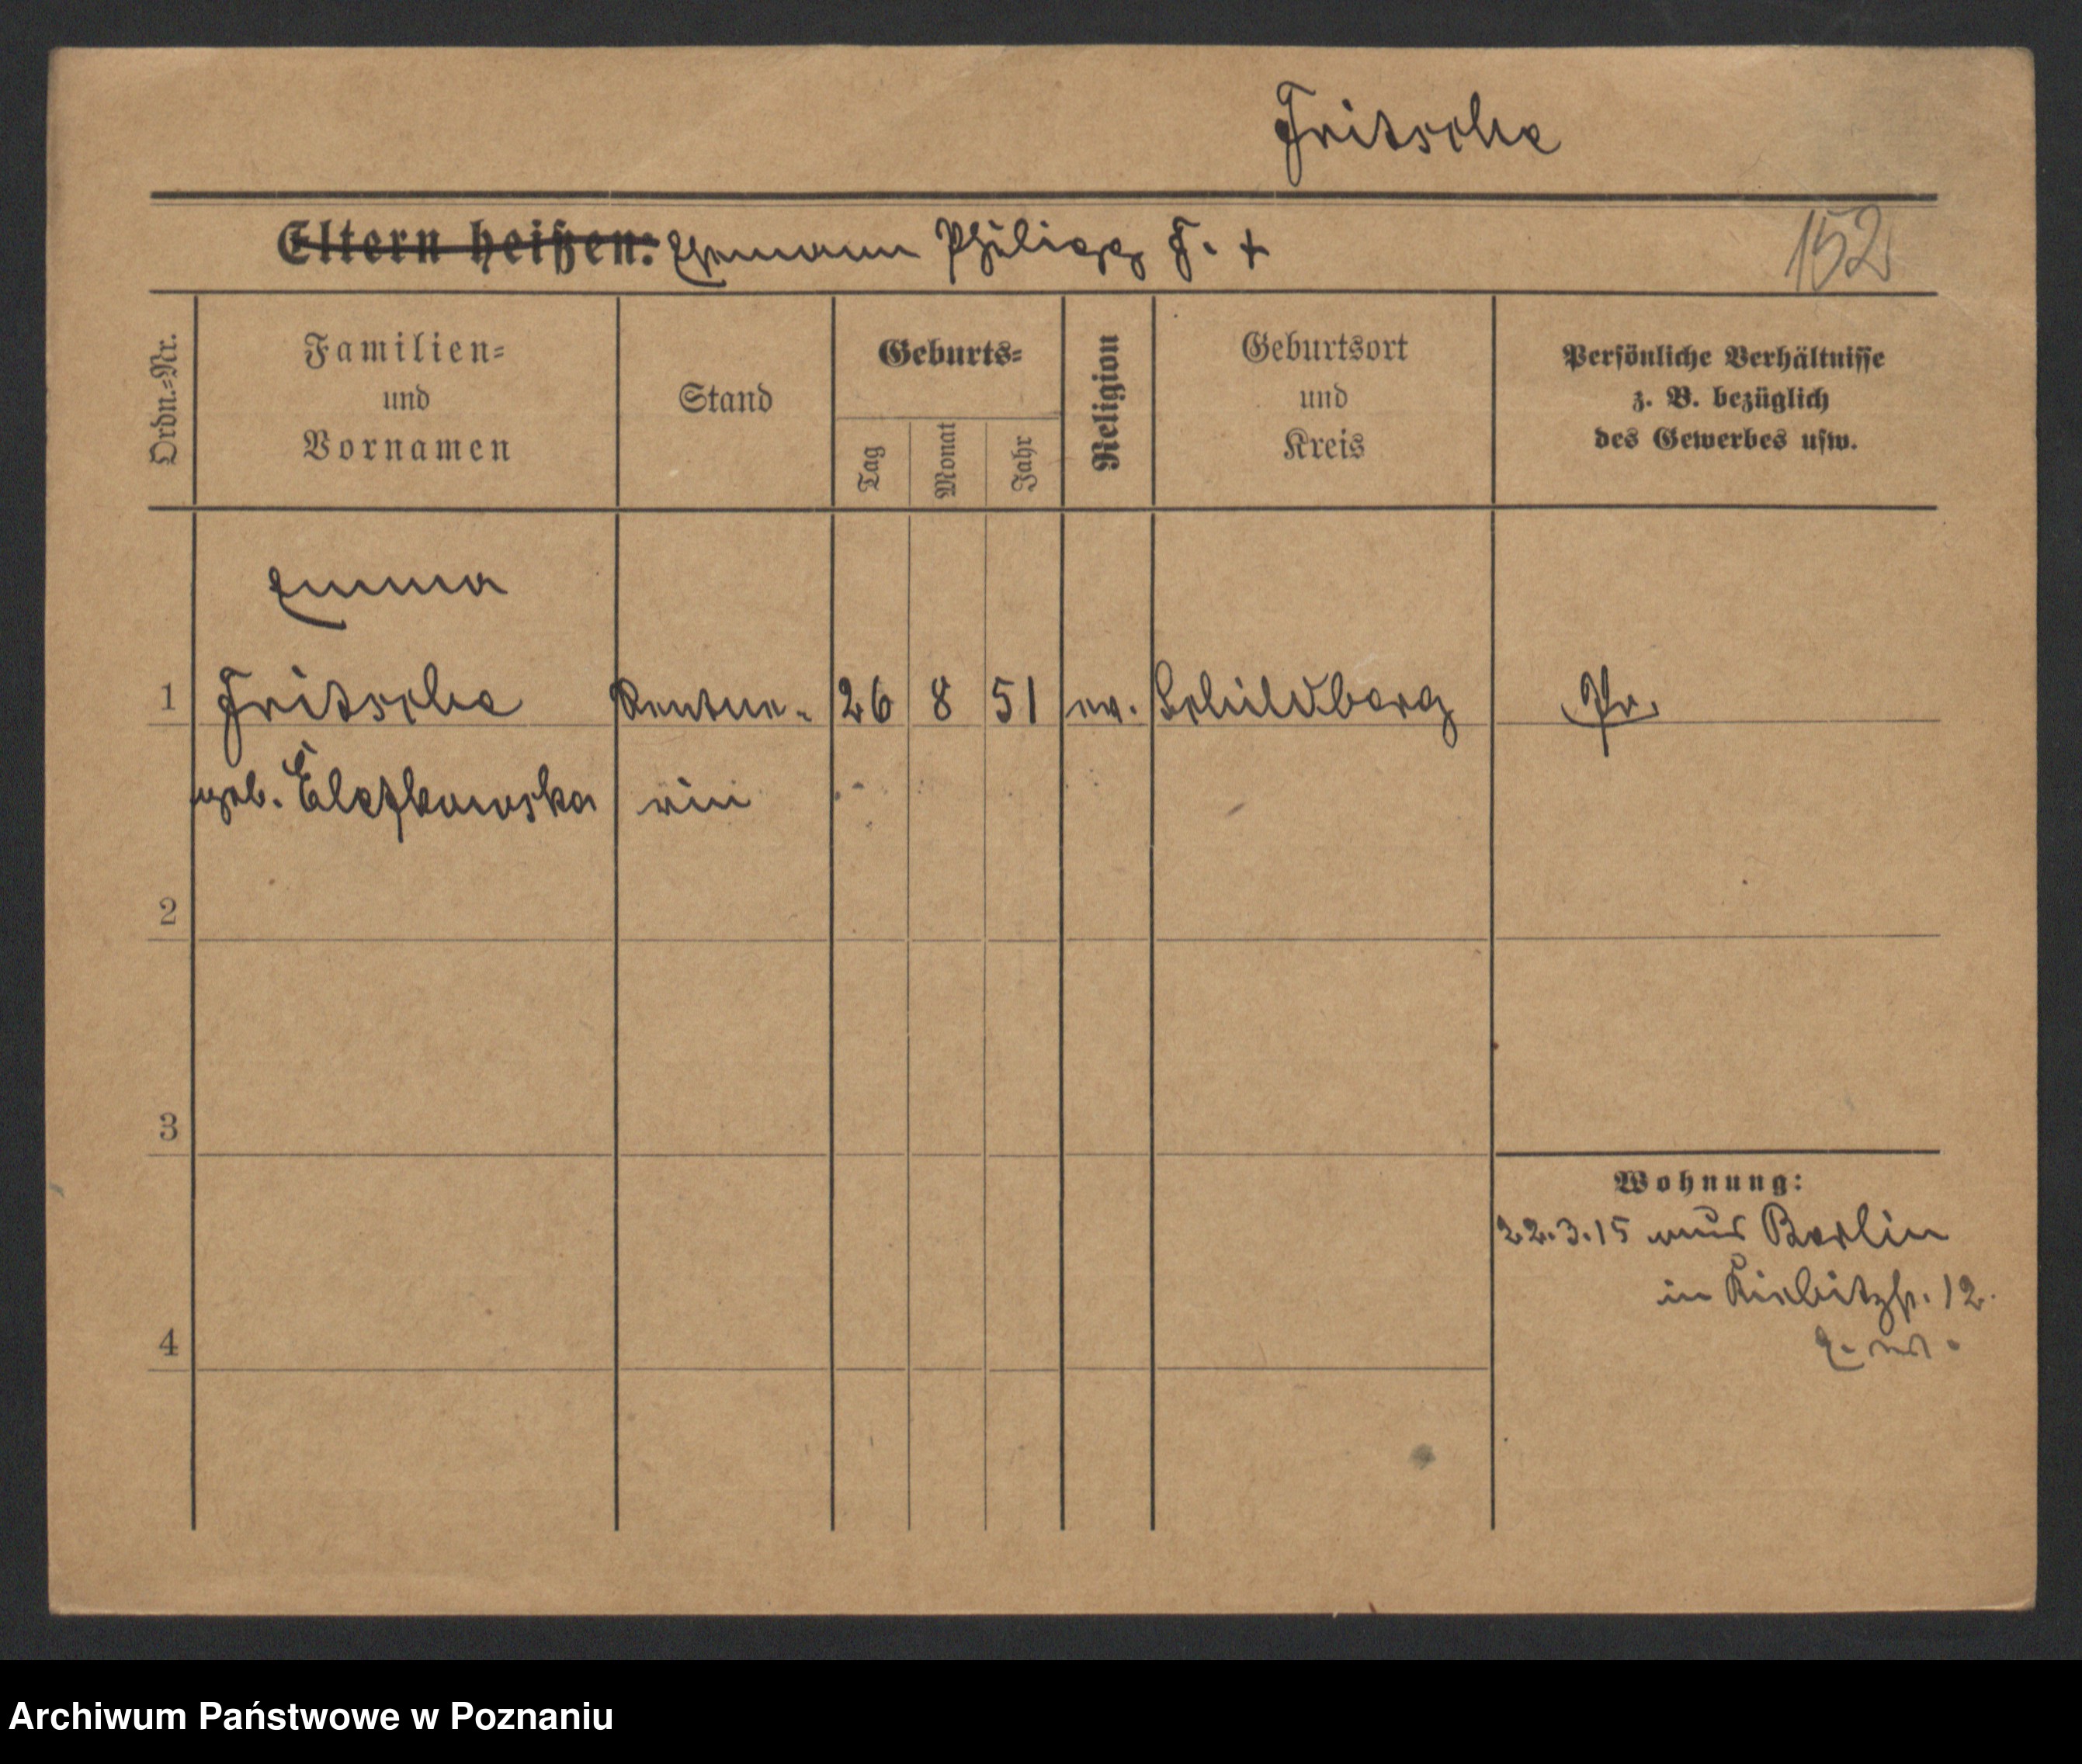 Fritsche
Eltern heißen: Ehemann Philipp F. +
152
Ordn.=Nr.
Familien=
und
Vornamen
Stand
Geburts=
Tag
Monat
Jahr
Religion
Geburtsort
und
Kreis
Persönliche Verhältnisse
z. B. bezüglich
des Gewerbes usw.
Emma
1 Fritsche Rentne- 26 8 51 ev. Schildberg Pr.
geb. rin
2
3
Wohnung:
22.3.15 aus Berlin
in Kiebitzstr. 12.
4
Archiwum Państwowe w Poznaniu